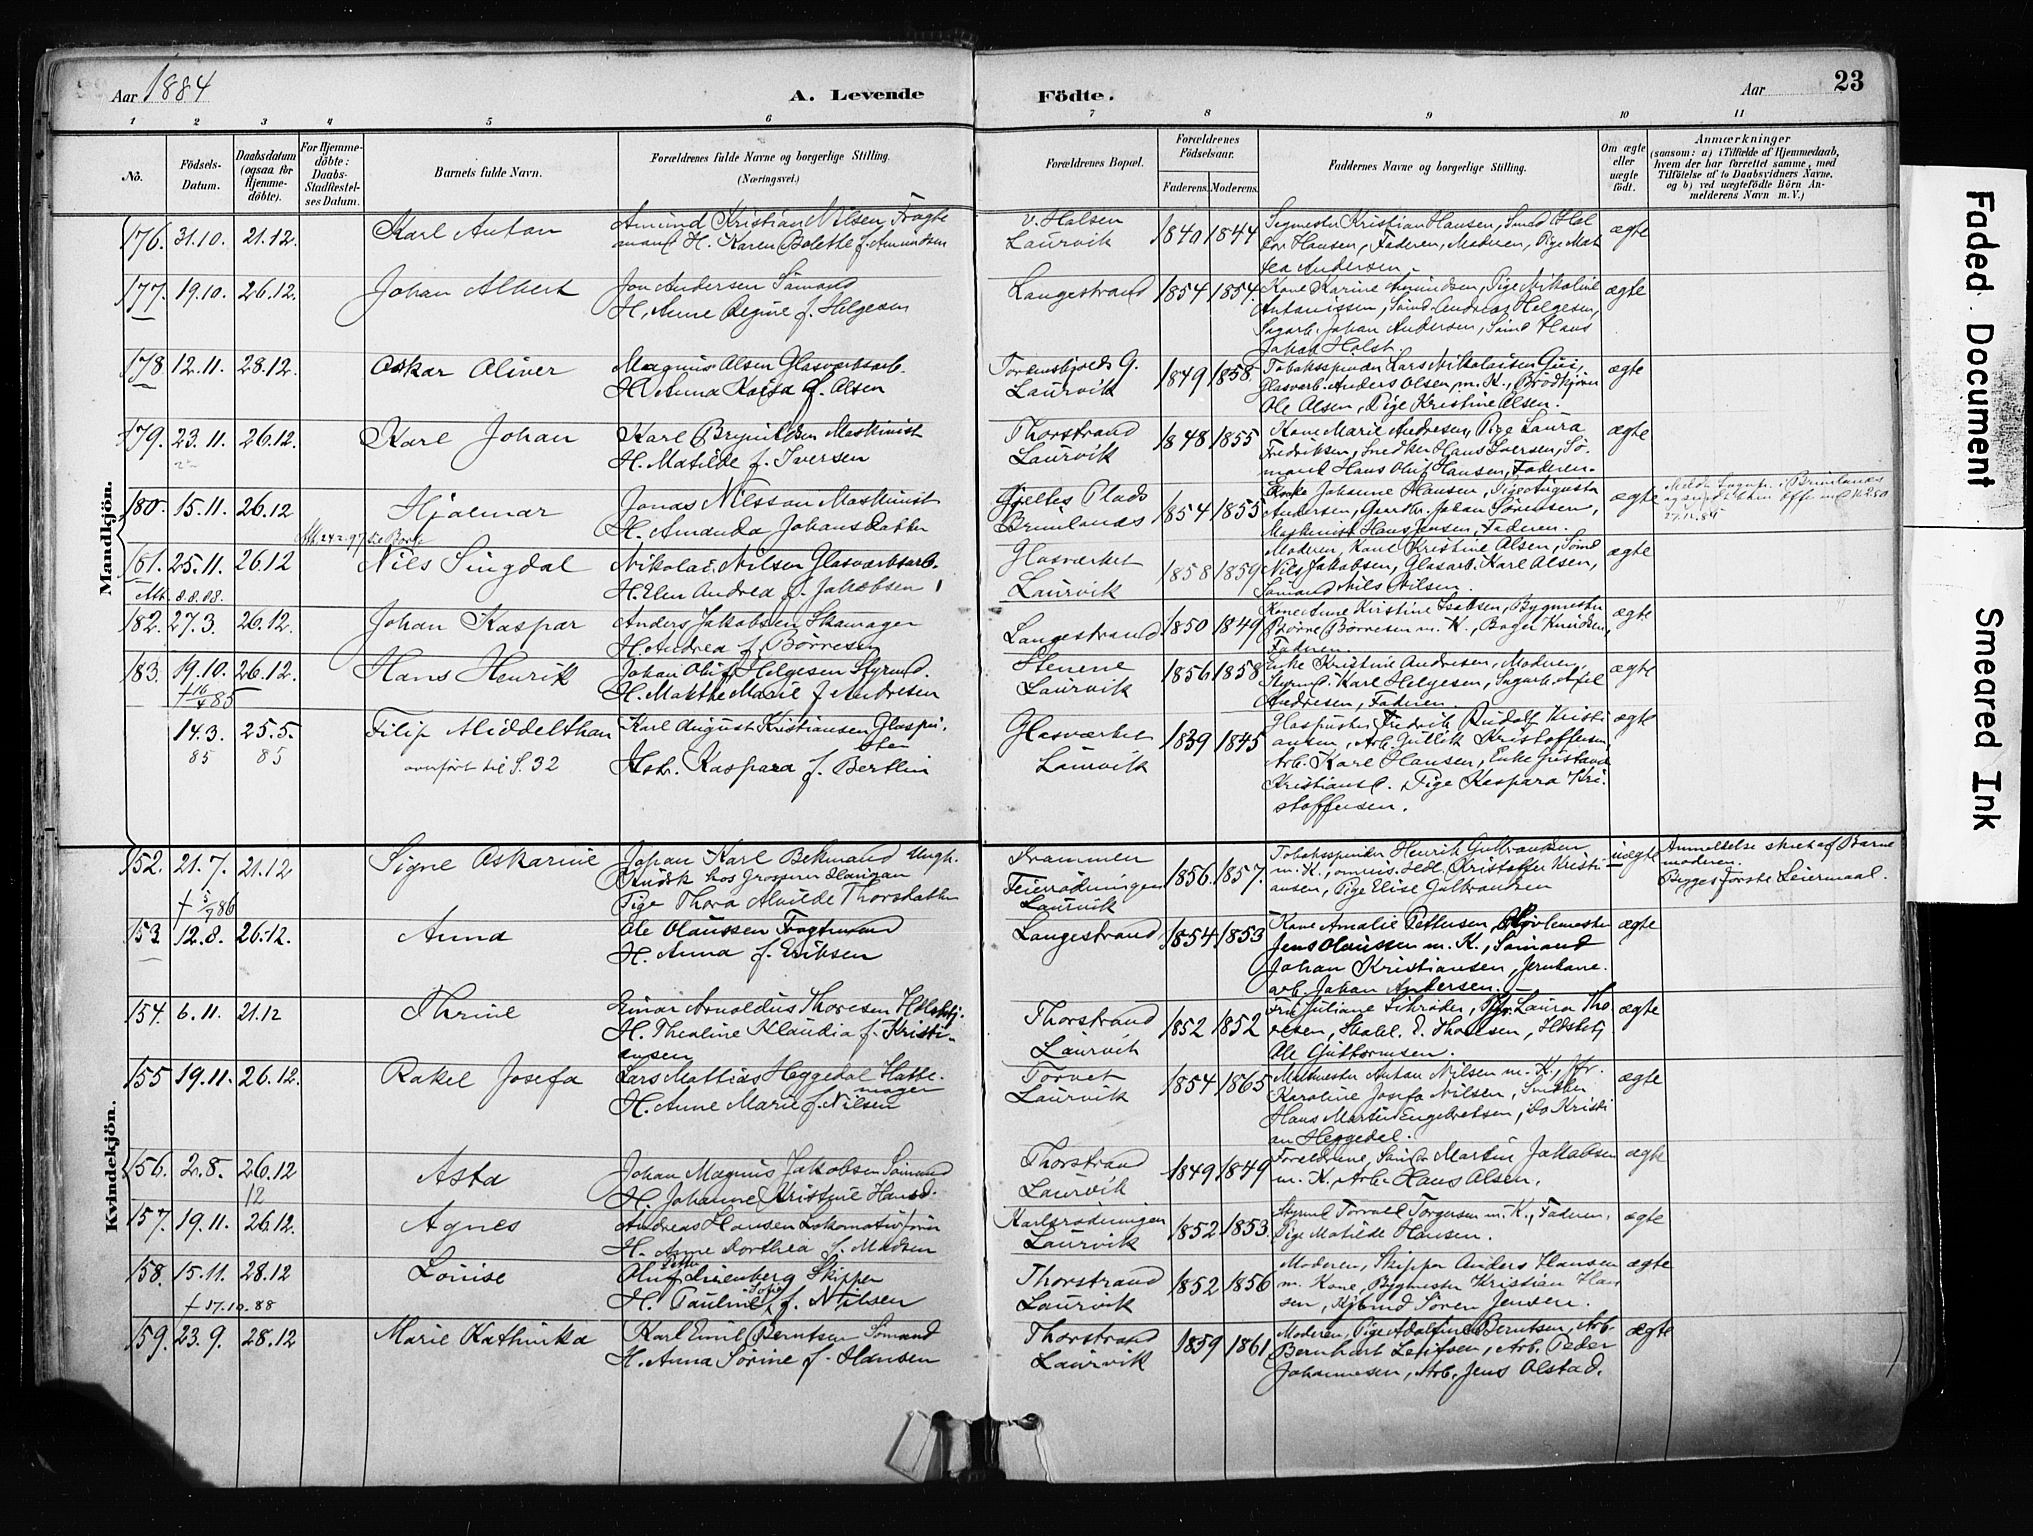 Aar 1884
A. Levende Födte.
Aar
23
1 2 3 4 5 6 7 8 9 10 11
No.
Födsels-Datum.
Daabsdatum (ogsaa for Hjemme-döbte).
For Hjemme-döbte: Daabs-Stadfæstel-ses Datum.
Barnets fulde Navn.
Forældrenes fulde Navne og borgerlige Stilling.
(Næringsvei.)
Forældrenes Bopæl.
Forældrenes Födselsaar.
Faderens. Moderens.
Faddernes Navne og borgerlige Stilling.
Om ægte eller uægte födt.
Anmærkninger
(saasom: a) i Tilfælde af Hjemmedaab,
hvem der har forrettet samme, med
Tilföielse af to Daabsvidners Navne,
og b) ved uægtefödte Börn An-
melderens Navn m. V.)
Mandkjön.
176. 31.10. 21.12. Karl Anton
Amund Kristian Nilsen Fragte
mand H. Karen Bolethe f. Amundsen
v. Halsen
Laurvik
1840 1844
Segmester Kristian Hansen, Smed Hal
Hansen, Faderen, Moderen, Pige Mat
tea Andersen.
ægte
177. 19.10. 26.12. Johan Albert
Jon Andersen Sömand
H. Anne Regine f. Helgesen
Langestrand
1854 1854.
Kone Karine Amundsen, Pige Nikoline
Antonissen, Sömd. Andreas Helgesen,
Sagarb. Johan Andersen, Sömd Hans
Johan Holst.
ægte
178 12.11. 28.12. Oskar Oliver
Magnus Olsen Glasverksarb.
H. Anna Kaisa f. Olsen
Tordenskjolds G.
Laurvik
1849 1858
Tobaksspinder Lars Nikolaisen
Glasverb. Anders Olsen, m. K., Brödkjörer
Ole Olsen, Pige Kristine Olsen.
ægte
179. 23.11. 26.12. Karl Johan
Karl Brynildsen Maskinist
H. Matilde f. Iversen
Thorstrand
Laurvik
1848 1855
Kone Marie Andresen, Pige Laura
Fredriksen, Snedker Hans Iversen, Sö-
mand Hans Oluf Hansen, Faderen.
ægte
180. 15.11. 26.12 Hjalmar
Jonas Nilsson Maskinist
H. Amanda Johansdatter
Gjelles Plads
Brunlanæs
1854 1855
Enke Johanne Hansen, Pige Augusta
Andersen, Johan Sörensen,
Maskinist Hans Jensen, Faderen.
ægte
181. 25.11. 26.12 Nils Singdal
Att. 8.8.08.
Nikolai Nilsen Glasverksarb.
H. Elen Andrea f. Jakobsen
Glasværket
Laurvik
1858 1859
Moderen, Kone Kristine Olsen, Sömd
Nils Jakobsen, Glasarb. Karl Olsen,
Sömand Nils Nilsen.
ægte
182. 27.3. 26.12. Johan Kaspar
Anders Jakobsen Skomager
H. Andrea f. Börresen
Langestrand
1850 1849
Kone Anne Kristine Isaksen, Bygmester
Börre Börresen m. K., Bager Knudsen,
Faderen
ægte
183. 19.10. 26.12. Hans Henrik
Johan Oluf Helgesen Styrmd.
H. Marthe Marie f. Andresen
Stenene
Laurvik
1856 1858
Enke Kristine Andresen, Moderen,
Styrmd. Karl Helgesen, Sagarb. Axel
Andresen, Faderen.
ægte
14.3. 85 25.5. 85 Filip Middelthon
overført til S. 32
Karl August Kristiansen Glaspu-
ster
Hstr. Kaspara f. Bertlin
Glasværket
Laurvik
1839 1845
Glaspuster Fredrik Rudolf Kristi
ansen, Arb. Gullik Kristoffersen
Arb. Karl Hansen, Enke Gustava
Kristians. Pige Kaspara Kri-
stoffersen.
ægte
Kvindekjön.
152. 21.7. 21.12 Signe Oskarine
Johan Karl Bekmand Ungk.
Kudsk hos Grosserer
Pige Thora Alvilde Thorsdatter
Drammen
Feierödningen
Laurvik
1856. 1857.
Tobaksspinder Henrik Gulbrandsen
m. K., Kristoffer Kristi
ansen, Pige Elise Gulbrandsen
uægte
Anmeldelse skriet af Barne
moderen.
Begges förste Leiermaal.
153. 12.8. 26.12. Anna
Ole Olaussen Fragtmand
H. Anna f. Eriksen
Langestrand
1854 1853
Kone Amalie Pettersen, Hövlemester
Jens Olaussen m. K., Sömand
Johan Kristiansen, Jernbane.
arb. Johan Andersen.
ægte
154. 6.11. 21.12 Thrine
Einar Arnoldus Thoresen
H. Thealine Klaudia f. Kristi-
ansen
Thorstrand
Laurvik
1852 1852
Fru Juliane Schröder, Pige Laura Tho
resen, E. Thoresen,
Ole Guttormsen.
ægte
155 19.11. 26.12. Rakel Josefa
Lars Mathias Heggedal Hatte-
mager
H. Anne Marie f. Nilsen
Torvet
Laurvik
1854 1865
Murmester Anton Nilsen m. K., Jfr.
Karoline Josefa Nilsen, Snedker
Hans Martin Engebretsen, Do Kristi
an Heggedal.
ægte
156. 2.8. 26.12 Asta
Johan Magnus Jakobsen Sömand
H. Johanne Kristine Hansd.
Thorstrand
Laurvik
1849 1849
Forældrene, Martin Jakobsen
m. K. Arb. Hans Olsen.
ægte
157. 19.11. 26.12. Agnes
Andreas Hansen Lokomotivförer
H. Anne Dorthea f. Madsen
Karlsrödningen
Laurvik
1852 1853.
Styrmd Torvald Torgersen m. K., Faderen,
Pige Matilde Hansen.
ægte
158. 15.11. 28.12 Louise
17.10.88
Oluf Lienberg Skipper
H. Pauline Sofie f. Nilsen
Thorstrand
Laurvik
1852 1856
Moderen, Skipper Anders Hansen
m. Kone, Bygmester Kristian Han
sen, Kjbmd Sören Jensen.
ægte
159. 23.9. 28.12 Marie Kathinka
Karl Emil Berntsen Sömand
H. Anna Sörine f. Hansen
Thorstrand
Laurvik
1859 1861
Moderen, Pige Adolfine Berntsen, Arb.
Bernhart, Arb. Peder
Johannesen, Arb. Jens Olstad.
ægte
Faded Document
Smeared Ink